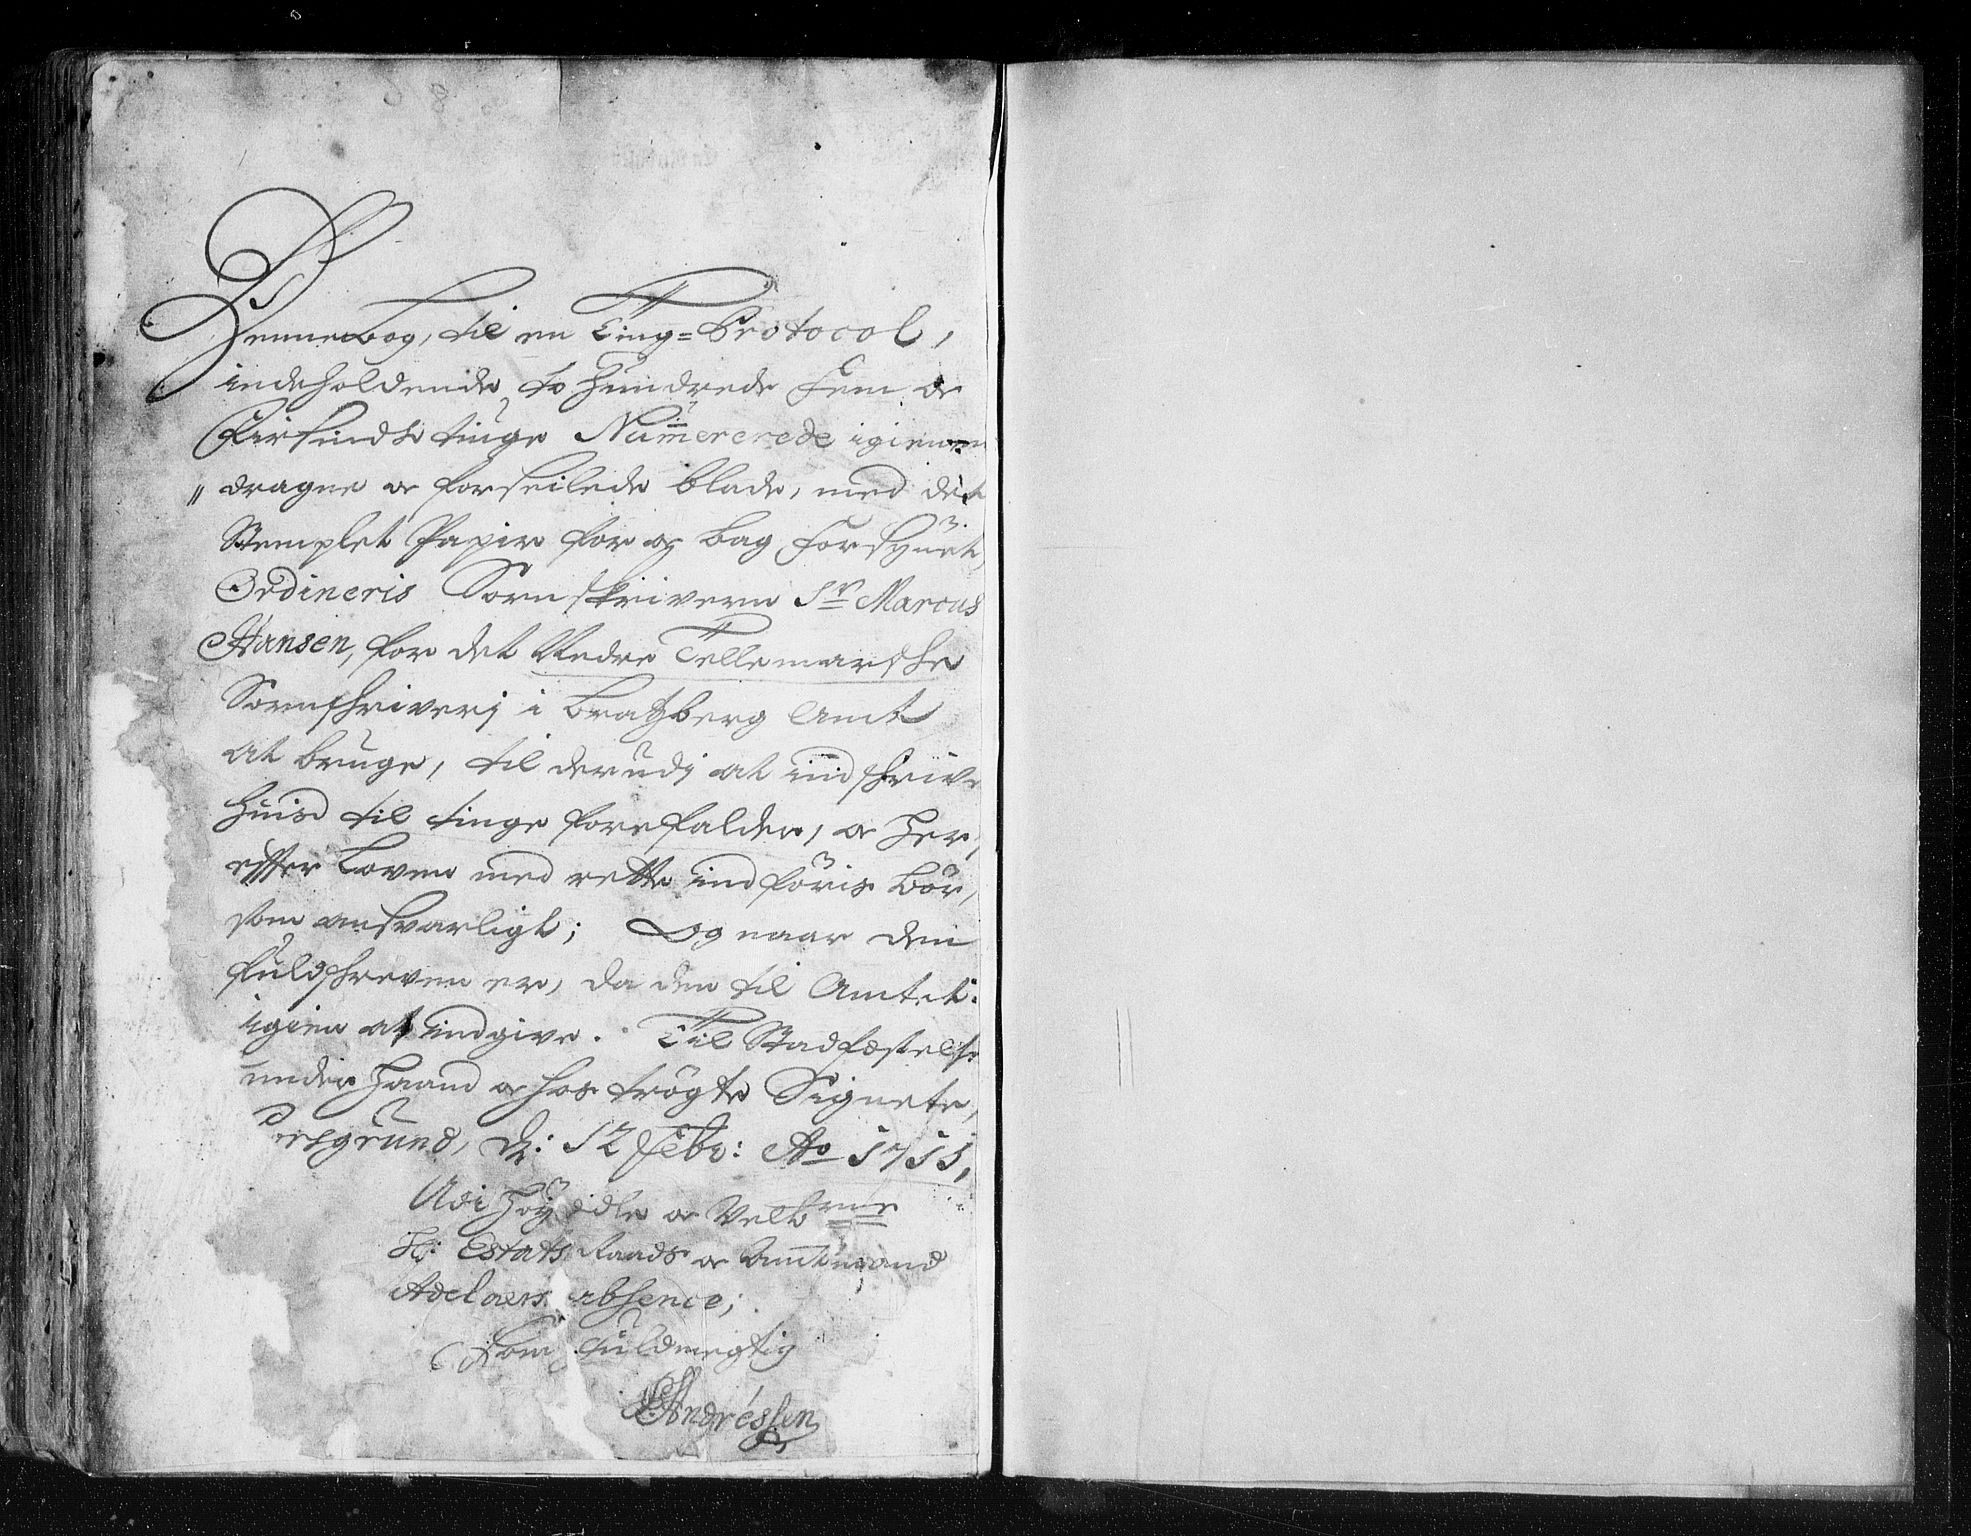 Dennebog, til en Ting=Protocol,
indeholdende to Hundrede Fem oc
Firsindstiuge Numererede igienem
" dragne oc forseilede blade, med det
Stemplet Papir for og bag forsÿnet,
Ordineris Sornskrivern Sr Marcus
Hansen, for det Nedre Tellemarsche
Sornschriverj i Bratzberg Amt
at bruge, til derudj at indschrive
huis til tinge forefalder, oc her,
effter Loven med rette indføris bør,
som ansvarligt; Og naar den
fuldschreven er, da den til Amtet
igien at indgive. Til Stadfæstelse
under Haand oc hos trøgte Signete,
ersgrund, d: 12 Febr: Ao 1711,
Udi Høÿ ædle oc Velbrne
Hr: Estats Raads oc Amtmand
Adelaers absence;
Som fuldmegtig
Andréssen